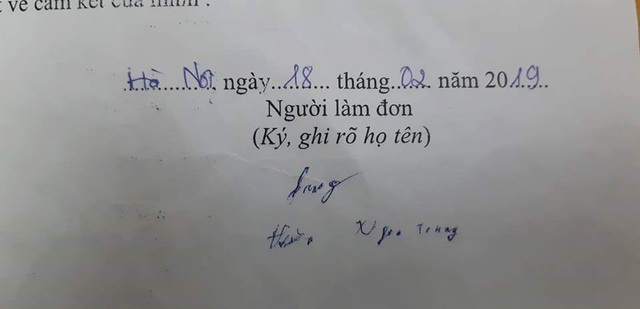 về cam kết của mình .
Hà Nội, ngày 18 tháng 02 năm 2019
Người làm đơn
(Ký, ghi rõ họ tên)
Trung
Trung